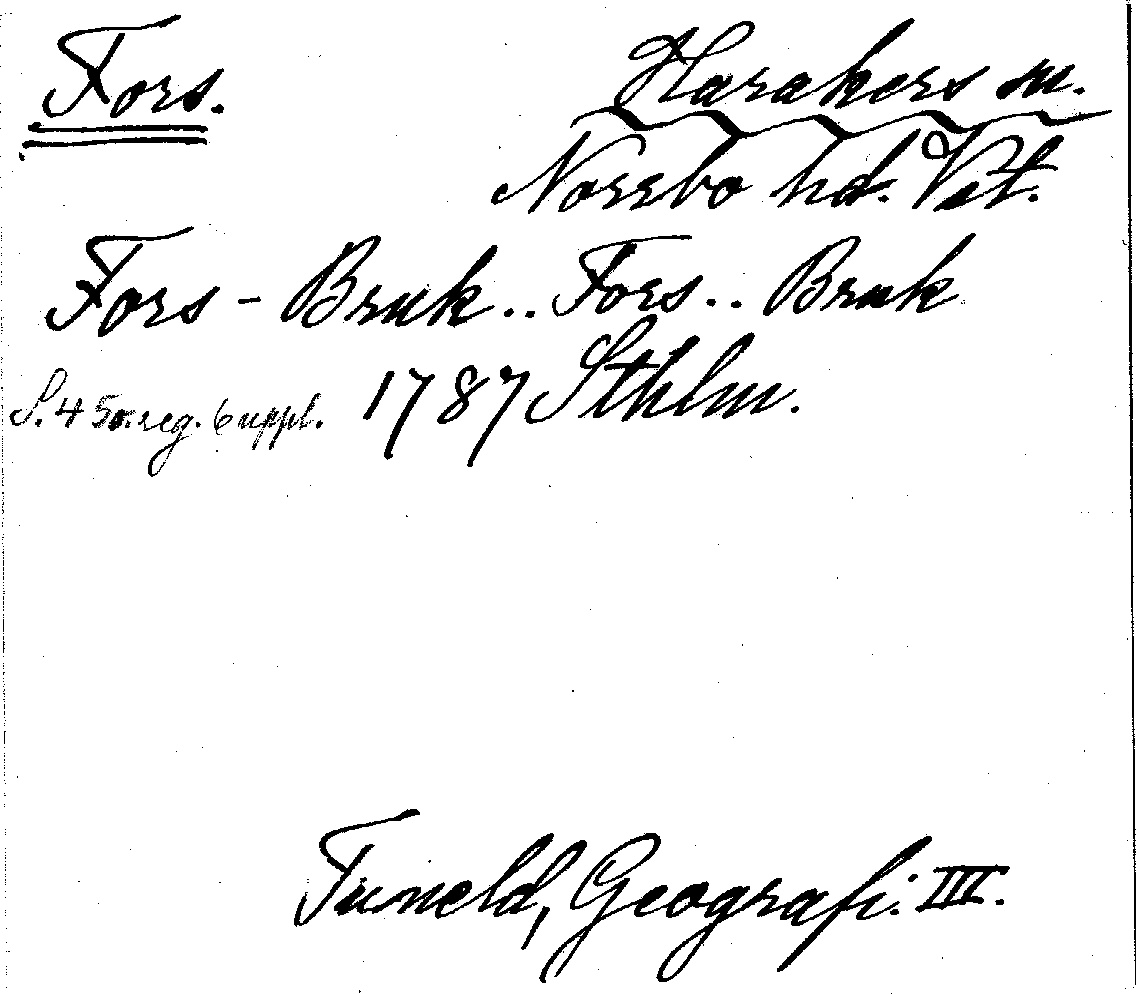 Fors.
Harakers sn.
Norrbo hd. Vstm.
Fors - Bruk .. Fors .. Bruk
S. 45 o. reg. 6 uppl. 1787 Sthlm.
Tuneld, Geografi. III.